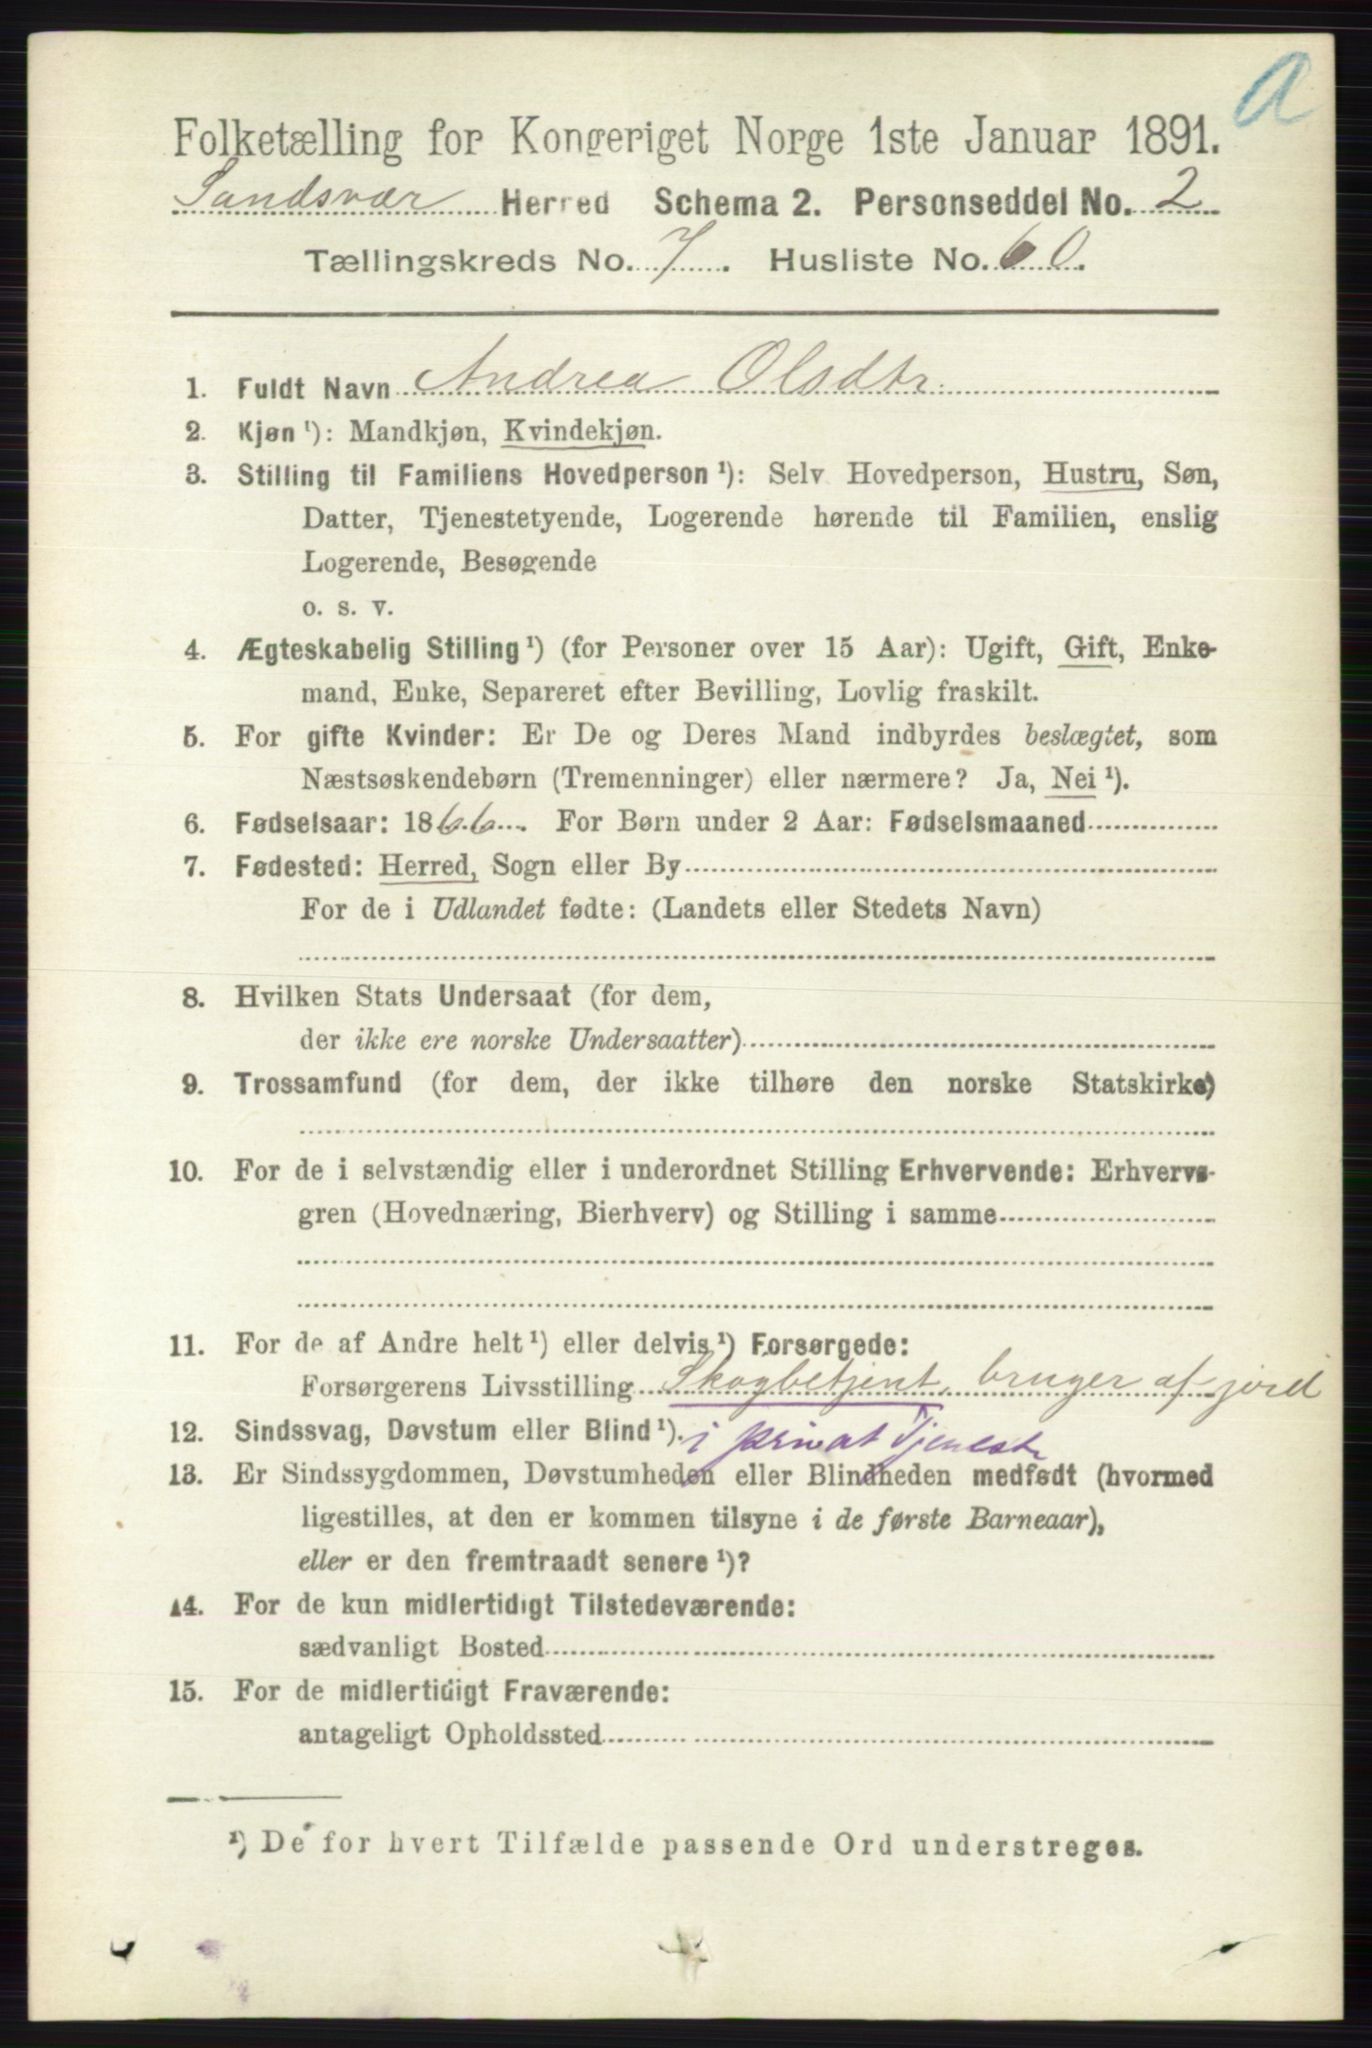 a
Folketælling for Kongeriget Norge 1ste Januar 1891.
Sandsvær Herred Schema 2. Personseddel No. 2
Tællingskreds No. 7. Husliste No. 60.
1. Fuldt Navn Andrea Olsdtr.
2. Kjøn ¹): Mandkjøn, Kvindekjøn.
3. Stilling til Familiens Hovedperson ¹): Selv Hovedperson, Hustru, Søn,
Datter, Tjenestetyende, Logerende hørende til Familien, enslig
Logerende, Besøgende
o. s. v.
4. Ægteskabelig Stilling ¹) (for Personer over 15 Aar): Ugift, Gift, Enke-
mand, Enke, Separeret efter Bevilling, Lovlig fraskilt.
5. For gifte Kvinder: Er De og Deres Mand indbyrdes beslægtet, som
Næstsøskendebørn (Tremenninger) eller nærmere? Ja, Nei ¹).
6. Fødselsaar: 1866. For Børn under 2 Aar: Fødselsmaaned
7. Fødested: Herred, Sogn eller By
For de i Udlandet fødte: (Landets eller Stedets Navn)
8. Hvilken Stats Undersaat (for dem,
der ikke ere norske Undersaatter)
9. Trossamfund (for dem, der ikke tilhøre den norske Statskirke)
10. For de i selvstændig eller i underordnet Stilling Erhvervende: Erhvervs-
gren (Hovednæring, Bierhverv) og Stilling i samme
11. For de af Andre helt ¹) eller delvis ¹) Forsørgede:
Forsørgerens Livsstilling Skogbetjent, bruger af jord
i privat Tjeneste
12. Sindssvag, Døvstum eller Blind ¹).
13. Er Sindssygdommen, Døvstumheden eller Blindheden medfødt (hvormed
ligestilles, at den er kommen tilsyne i de første Barneaar),
eller er den fremtraadt senere ¹)?
14. For de kun midlertidigt Tilstedeværende:
sædvanligt Bosted
15. For de midlertidigt Fraværende:
antageligt Opholdssted
¹) De for hvert Tilfælde passende Ord understreges.